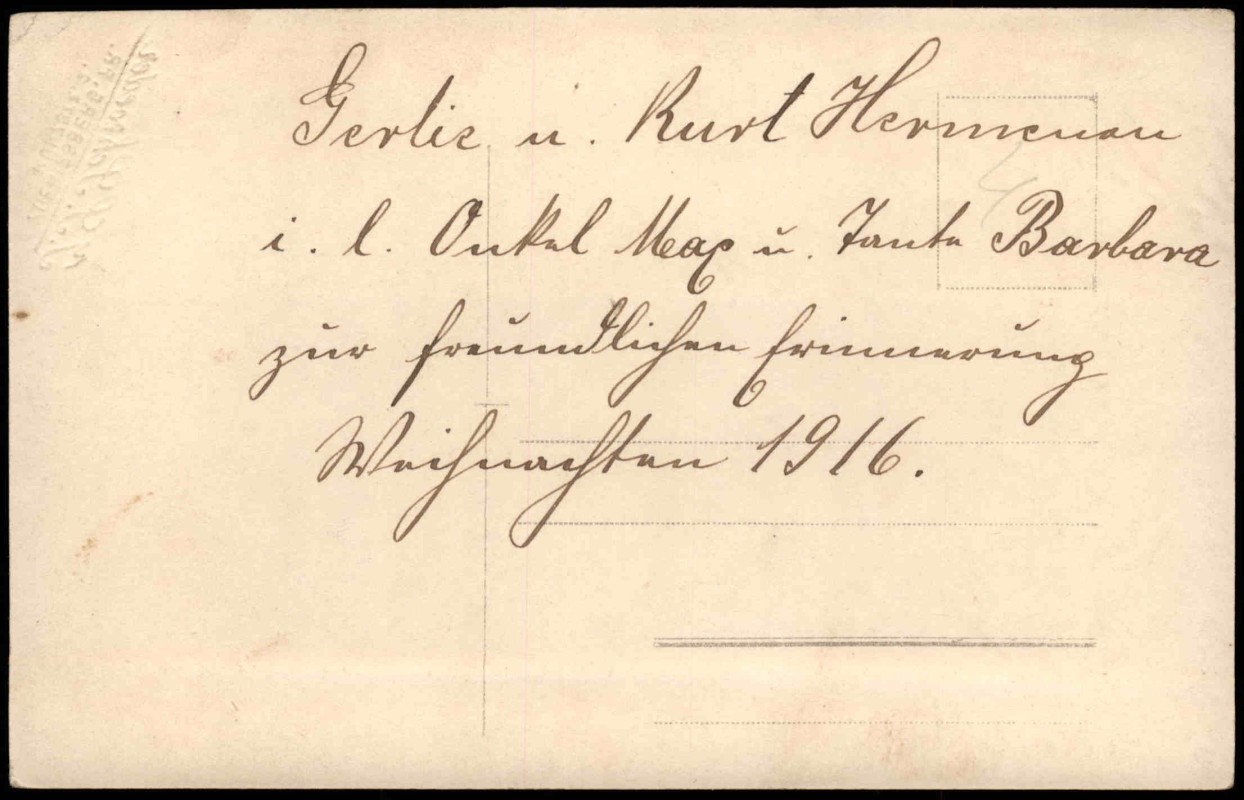 Gertie u. Kurt Hermenau
i. l. Onkel Max u. Tante Barbara
zur freundlichen Erinnerung
Weihnachten 1916.